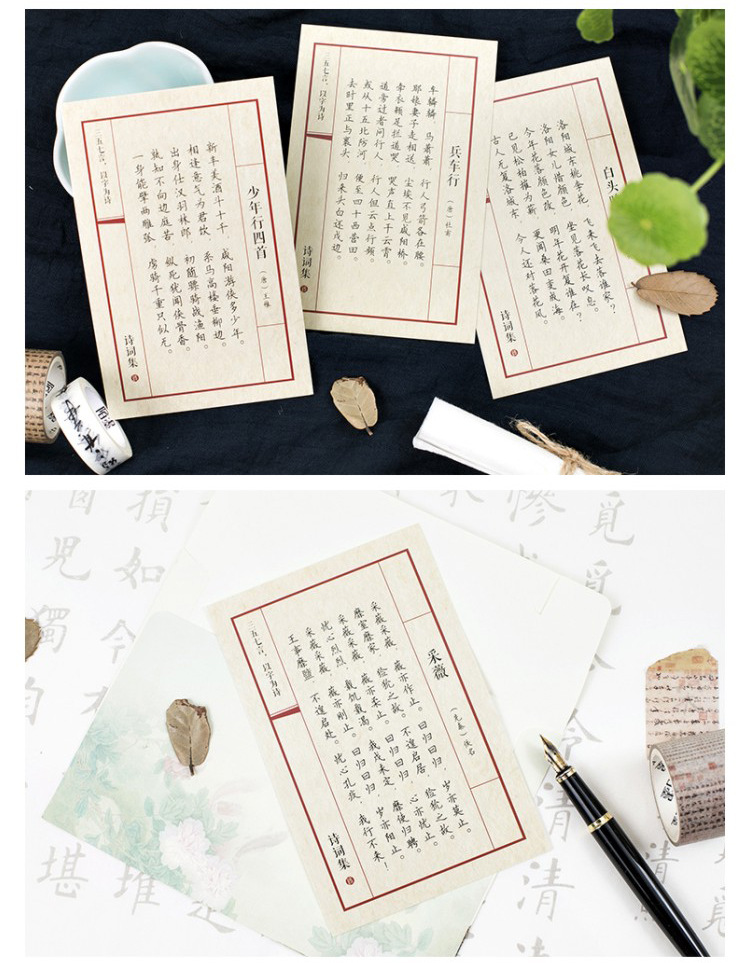 少年行四首
(唐)王维
新丰美酒斗十千，咸阳游侠多少年。
相逢意气为君饮，系马高楼垂柳边。
出身仕汉羽林郎，初随骠骑战渔阳。
孰知不向边庭苦，纵死犹闻侠骨香。
一身能擘两雕弧，虏骑千重只似无。
三五七言，以字为诗
诗词集
兵车行
(唐)杜甫
车辚辚，马萧萧，行人弓箭各在腰。
耶娘妻子走相送，尘埃不见咸阳桥。
牵衣顿足拦道哭，哭声直上干云霄。
道旁过者问行人，行人但云点行频。
或从十五北防河，便至四十西营田。
去时里正与裹头，归来头白还戍边。
三五七言，以字为诗
诗词集
白头
洛阳城东桃李花，飞来飞去落谁家？
洛阳女儿惜颜色，坐见落花长叹息。
今年花落颜色改，明年花开复谁在？
已见松柏摧为薪，更闻桑田变成海。
古人无复洛城东，今人还对落花风。
诗词集
采薇
(先秦)佚名
采薇采薇，薇亦作止。曰归曰归，岁亦莫止。
靡室靡家，猃狁之故。不遑启居，猃狁之故。
采薇采薇，薇亦柔止。曰归曰归，心亦忧止。
忧心烈烈，载饥载渴。我戍未定，靡使归聘。
采薇采薇，薇亦刚止。曰归曰归，岁亦阳止。
王事靡盬，不遑启处。忧心孔疚，我行不来！
三五七言，以字为诗
诗词集
慘
覓
損
如
今
兒
獨
堪
堆
今
清
清
覓